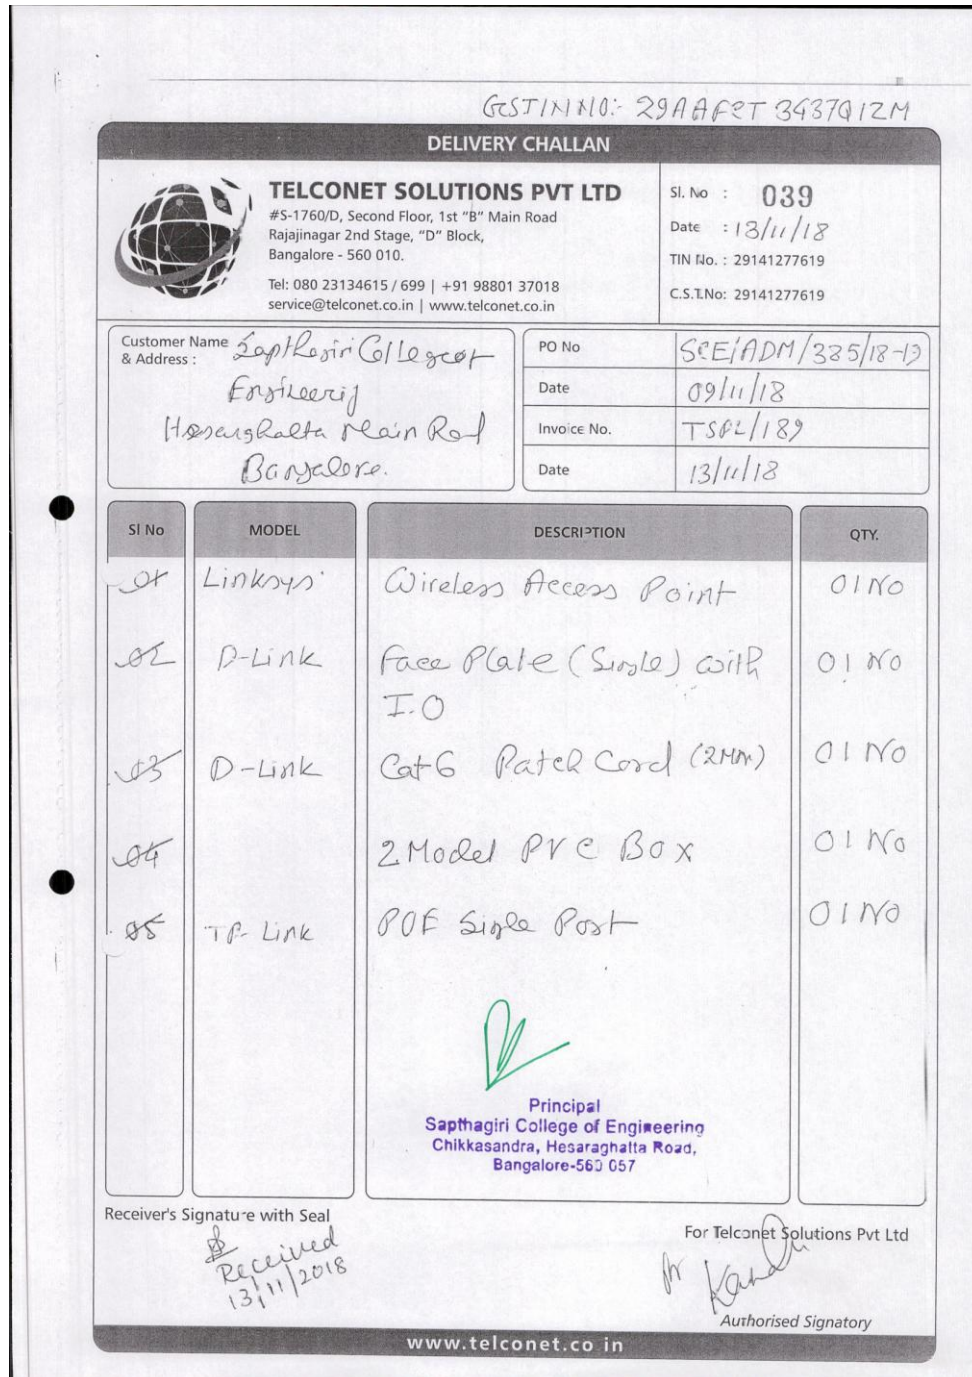 GSTIN NO:- 29AAFCT3437Q1ZM
DELIVERY CHALLAN
TELCONET SOLUTIONS PVT LTD
#S-1760/D, Second Floor, 1st "B" Main Road
Rajajinagar 2nd Stage, "D" Block,
Bangalore - 560 010.
Tel: 080 23134615 / 699 | +91 98801 37018
service@telconet.co.in | www.telconet.co.in
Sl. No : 039
Date : 13/11/18
TIN No. : 29141277619
C.S.T.No: 29141277619
Customer Name & Address : Sapthagiri College of
Engineerig
Hesarghatta Main Rod
Bangalore.
PO No SCE/ADM/385/18-19
Date 09/11/18
Invoice No. TSPL/189
Date 13/11/18
Sl No MODEL DESCRIPTION QTY.
01 Linksys Wireless Access Point 01 No
02 D-Link Face Plate (Single) with 01 No
I.O
03 D-Link Cat 6 Patch Cord (2Mtr) 01 No
04 2 Model PVC Box 01 No
05 TP-Link POE Single Port 01 No
Principal
Sapthagiri College of Engineering
Chikkasandra, Hesaraghatta Road,
Bangalore-560 057
Receiver's Signature with Seal
Received
13/11/2018
For Telconet Solutions Pvt Ltd
Authorised Signatory
www.telconet.co in